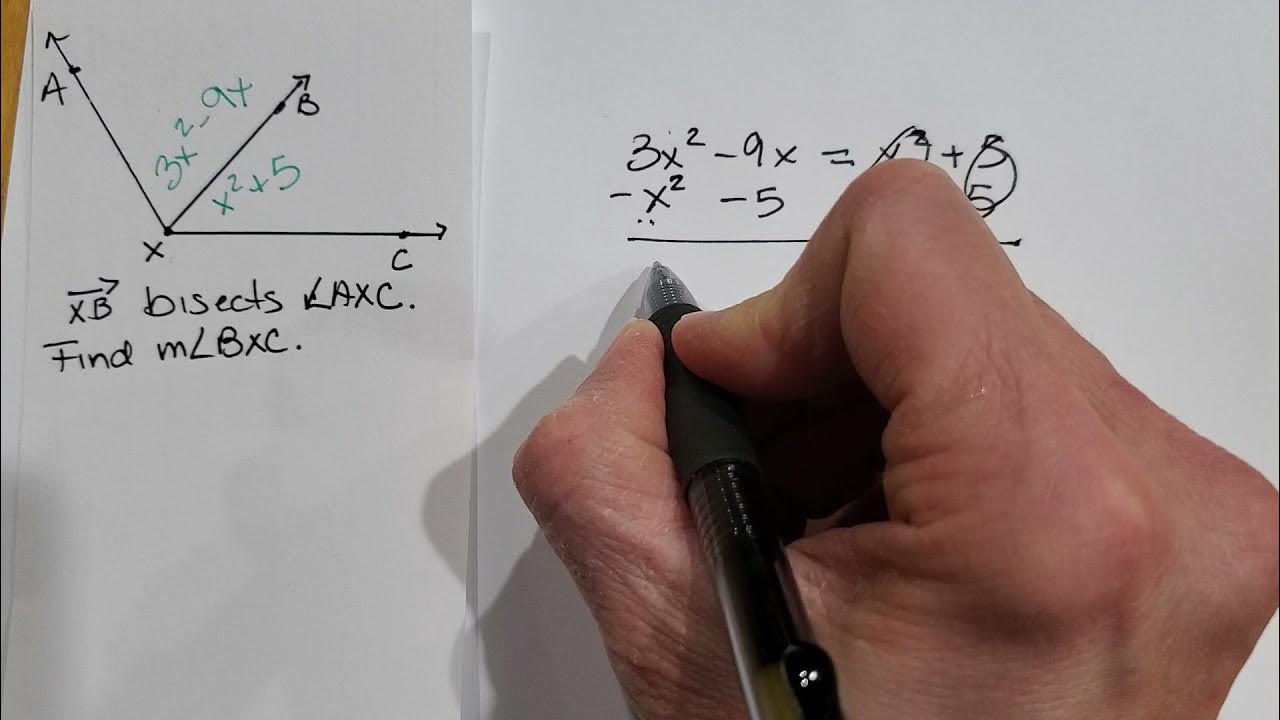 A
3x² - 9x
B
x² + 5
X
C
XB bisects ∠AXC.
Find m∠BXC.
3x² - 9x = x² + 5
-x² - 5 5